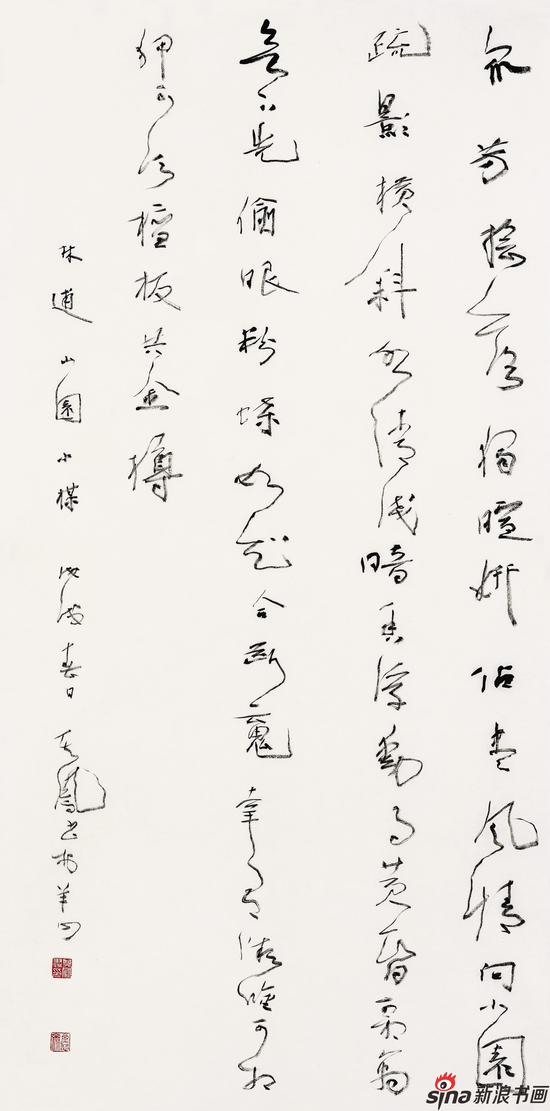 衆芳摇落獨暄妍佔盡風情向小園
疏影横斜水清淺暗香浮動月黄昏霜禽
欲下先偷眼粉蝶如知合斷魂幸有微吟可相
狎不須檀板共金樽
林逋山園小楳 戊戌春日 鳳書於羊
sina新浪书画